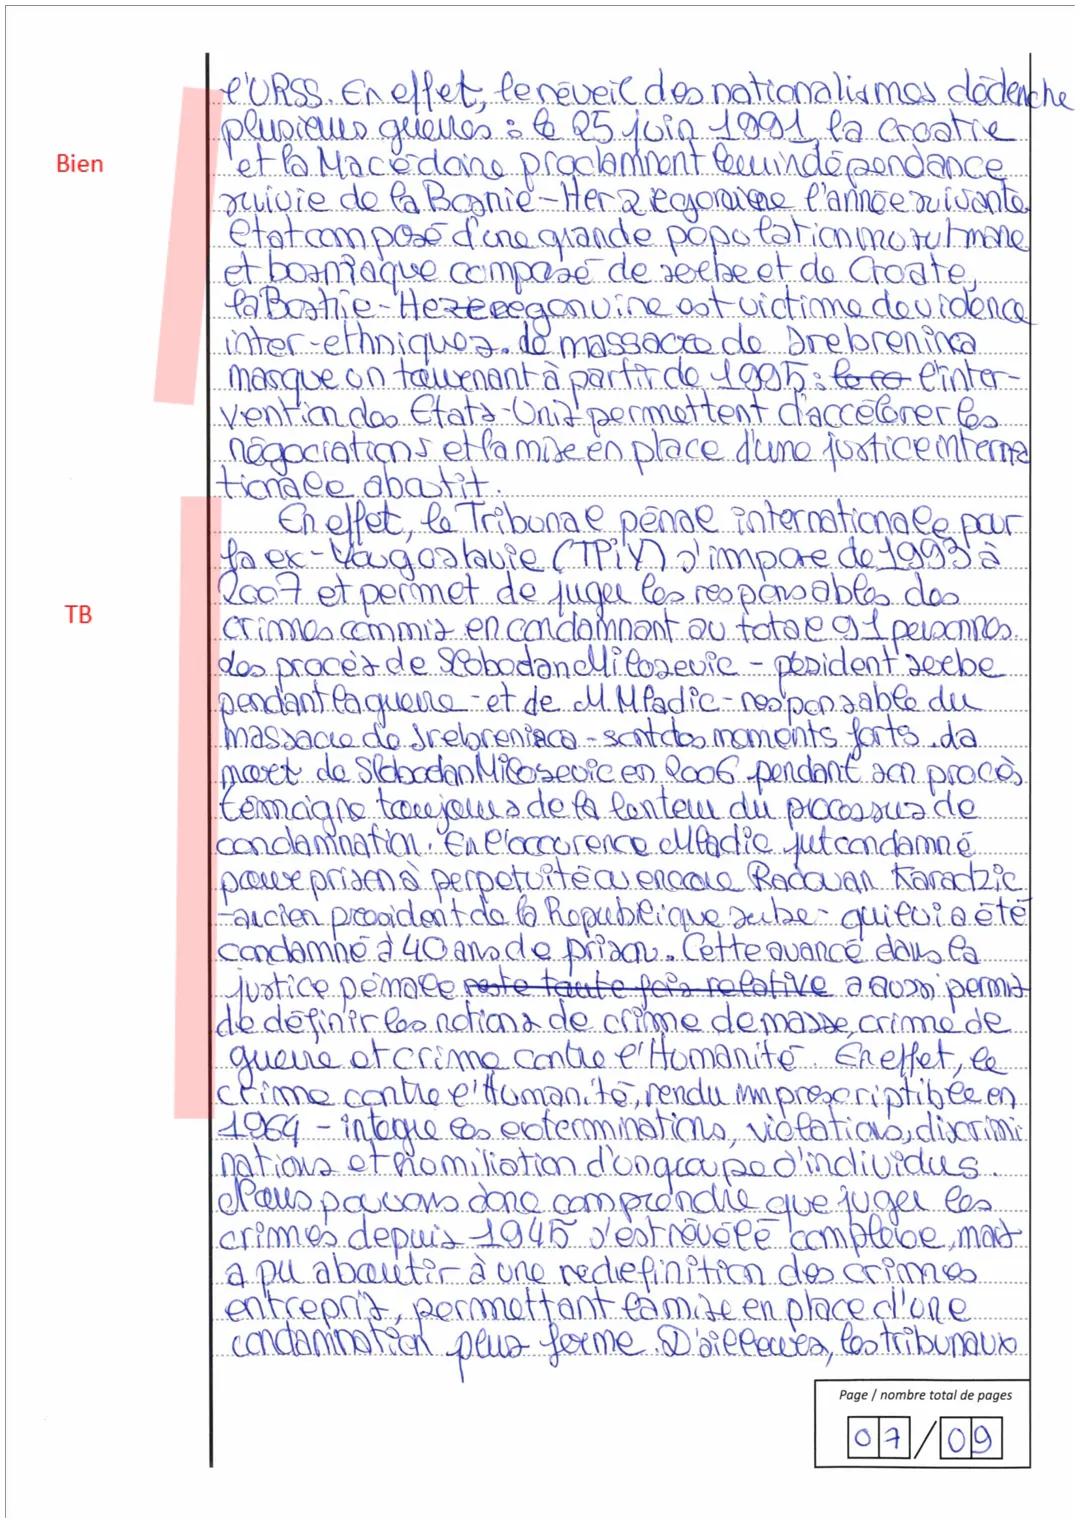 l'URSS. En effet, le réveil des nationalismes déclenche
plusieurs guerres : le 25 juin 1991, la Croatie
Bien
et la Macédoine proclamment leur indépendance
suivie de la Bosnie-Herzégovine l'année suivante.
Etat composé d'une grande population musulmane
et bosniaque composé de serbe et de Croate,
la Bosnie-Herzégovine est victime de violence
inter-ethniques. Le massacre de Srebrenica
marque un tournant à partir de 1995 : l'inter-
vention des Etats-Unis permettent d'accélérer les
négociations et la mise en place d'une justice interna
tionale aboutit.
En effet, le Tribunal pénal internationale pour
la ex-Yougoslavie (TPIY) s'impose de 1993 à
2007 et permet de juger les responsables des
TB
crimes commis en condamnant au total 91 personnes.
Les procès de Slobodan Milosevic - pésident serbe
pendant la guerre - et de M. Mladic - responsable du
massacre de Srebrenica - sont des moments forts. La
mort de Slobodan Milosevic en 2006 pendant son procès
témoigne toujours de la lenteur du processus de
condamnation. En l'occurence Mladic fut condamné
pour prison à perpétuité ou encore Radovan Karadzic
- ancien president de la République serbe - qui lui a été
condamné à 40 ans de prison. Cette avancé dans la
justice pénale reste toute fois relative a aussi permis
de définir les notions de crime de masse, crime de
guerre et crime contre l'Humanité. En effet, le
crime contre l'Humanité, rendu imprescriptible en
1964 - intègre les exterminations, violations, discrimi
nations et homiliation d'un groupe d'individus.
Nous pouvons donc comprendre que juger les
crimes depuis 1945 s'est révélé complexe, mais
a pu aboutir à une redefinition des crimes
entrepris, permettant la mise en place d'une
condamnation plus ferme. D'ailleurs, les tribunaux
Page / nombre total de pages
07/09